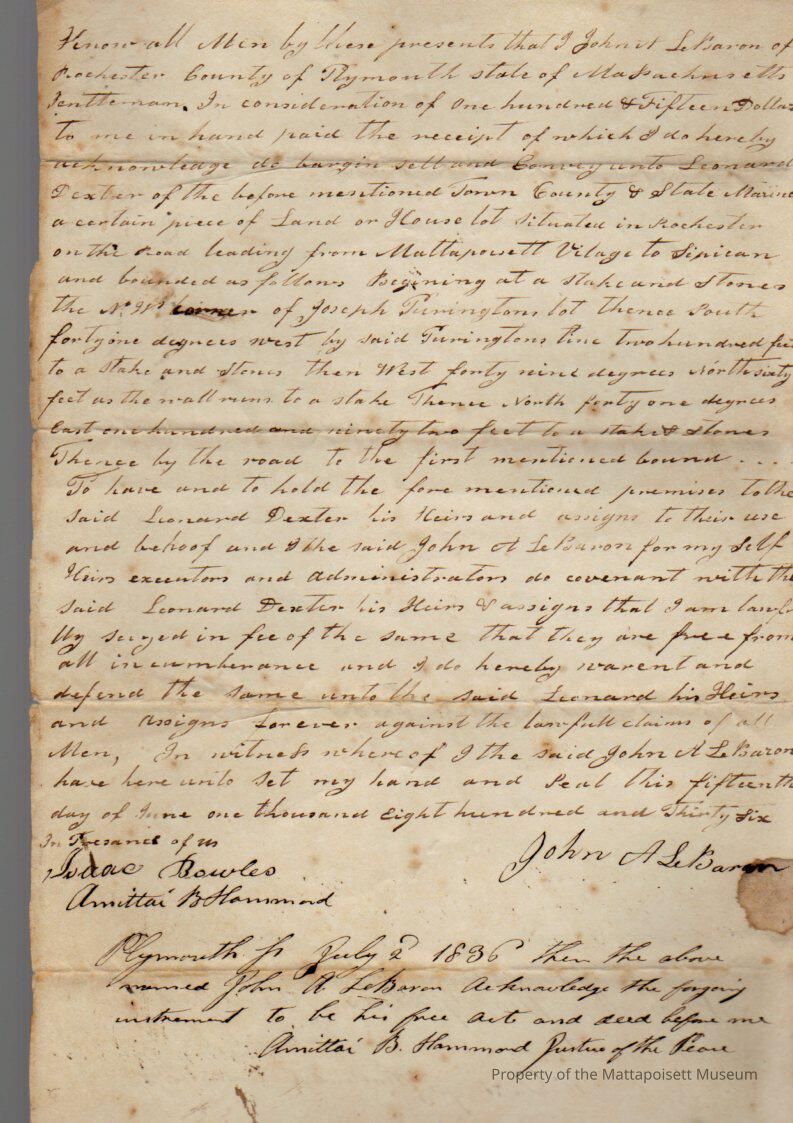 Know all Men by these presents that I John A LeBaron of
Rochester County of Plymouth state of Massachusetts
Gentleman. In consideration of one hundred & Fifteen Dollars
to me in hand paid the receipt of which I do hereby
acknowledge do bargin sell and Convey unto Leonard
Dexter of the before mentioned Town County & State Marine
a certain piece of Land or House lot situated in Rochester
on the road leading from Mattapoisett Vilage to Sipican
and bounded as follows Begining at a stake and Stones
the corner of Joseph Puringtons lot thence South
forty one degrees west by said Puringtons line two hundred feet
to a stake and stones then West forty nine degrees North sixty
feet as the wall runs to a stake Thence North forty one degrees
East one hundred and ninety two feet to a stake & stones
Thence by the road to the first mentioned bound . . . .
To have and to hold the fore mentioned premises to the
said Leonard Dexter his Heirs and assigns to their use
and behoof and I the said John A LeBaron for my Self
Heirs executors and administrators do covenant with the
said Leonard Dexter his Heirs & assigns that I am lawfu
lly seized in fee of the same that they are free from
all incumberance and I do hereby warent and
defend the same unto the said Leonard his Heirs
and Assigns forever against the lawfull claims of all
Men, In witness whereof I the said John A LeBaron
have here unto set my hand and Seal this fifteenth
day of June one thousand Eight hundred and Thirty Six
In Presance of us
Isaac Bowles John A LeBaron
Amittai B Hammond
Plymouth ss July 2d 1836 then the above
named John A LeBaron Acknowledge the forgoing
instrement to be his free act and deed before me
Amittai B. Hammond Justice of the Peace
Property of the Mattapoisett Museum